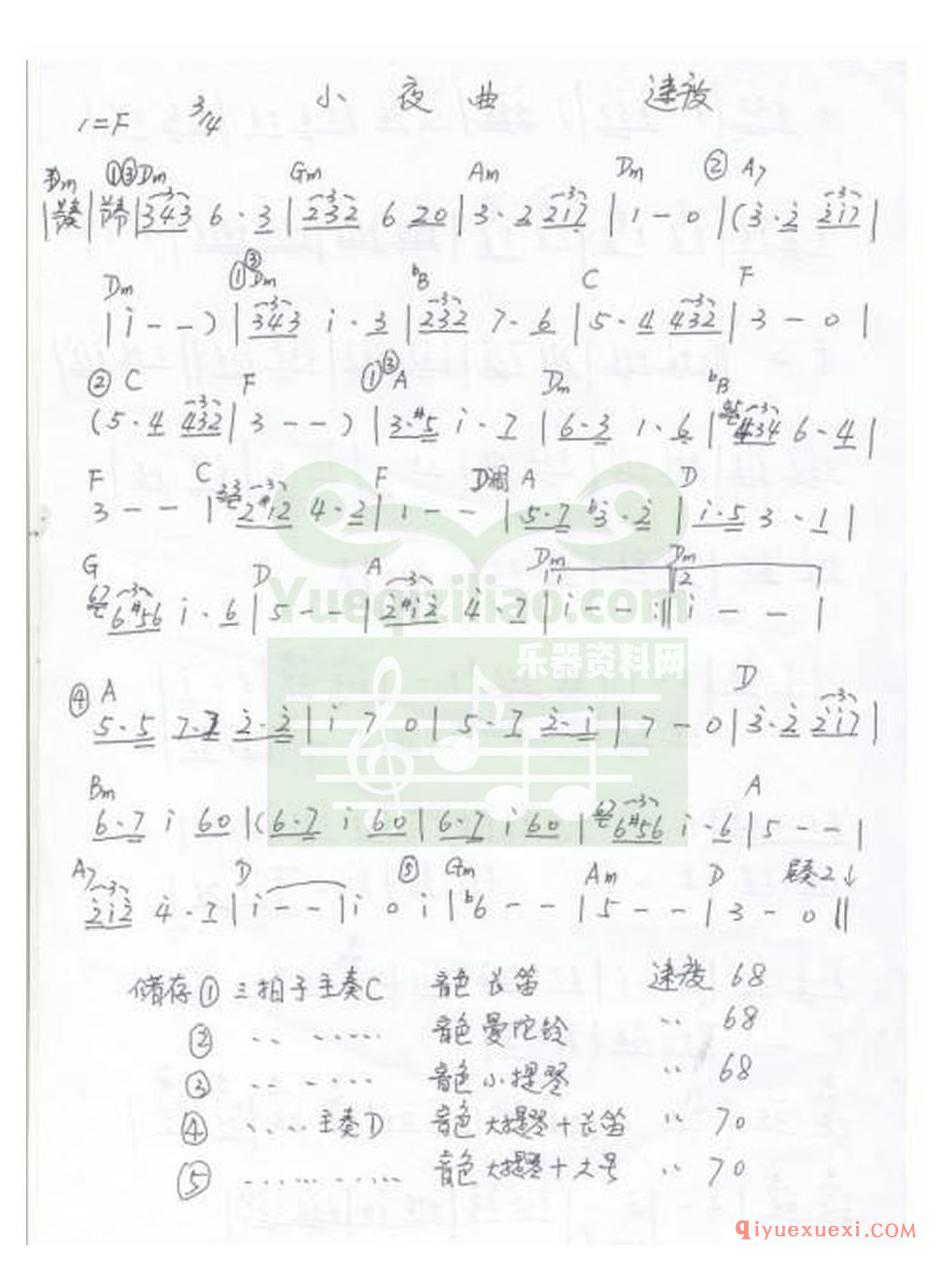 小夜曲 速度
1=F 3/4
Dm ①③Dm Gm Am Dm ② A7
|前奏|弱节|343 6·3|232 6 20|3·2 217|1-0|(3·2 217|
Dm ①③Dm bB C F
|i--)|343 i·3|232 7·6|5·4 432|3-0|
② C F ①③A Dm bB
(5·4 432|3--)|3·#5 i·7|6·3 1·6|434 6·4|
F C F D调 A D
3--|2#i2 4·2|1--|5·7 b3·2|i·5 3·1|
G D A Dm Dm
67 6#56 i·6|5--|2#i2 4·7|i--:||i--|
乐器资料网
Yueqiziliao.com
④ A D
5·5 7·7 2·2|i 7 0|5·7 2·i|7-0|3·2 2i7|
Bm A
6·7 i 60|(6·7 i 60|6·7 i 60|67 6#56 i·6|5--|
A7 D ⑤ Gm Am D 尾奏2↓
2i2 4·7|i--|i 0 i|b6--|5--|3-0||
储存① 三拍子主奏C 音色长笛 速度 68
② ‥ ‥‥‥ 音色曼陀铃 ‥ 68
③ ‥ ‥‥‥ 音色小提琴 ‥ 68
④ ‥‥主奏D 音色大提琴+长笛 ‥ 70
⑤ ‥‥‥‥‥ 音色大提琴+大号 ‥ 70
qiyuexuexi.COM